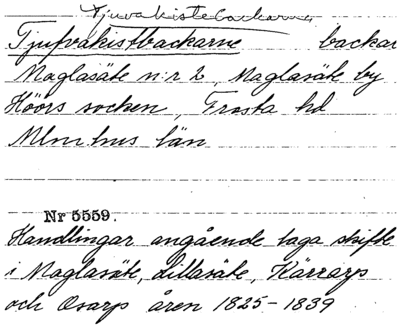 Tjuvakistebackarne
Tjufvakistbackarne backar
Maglasäte n:r 2, Maglasäte by
Höörs socken, Frosta hd
Mlm.hus län
Nr 5559.
Handlingar angående laga skifte
i Maglasäte, Lillasäte, Kärrarp
och Osarp åren 1825-1839